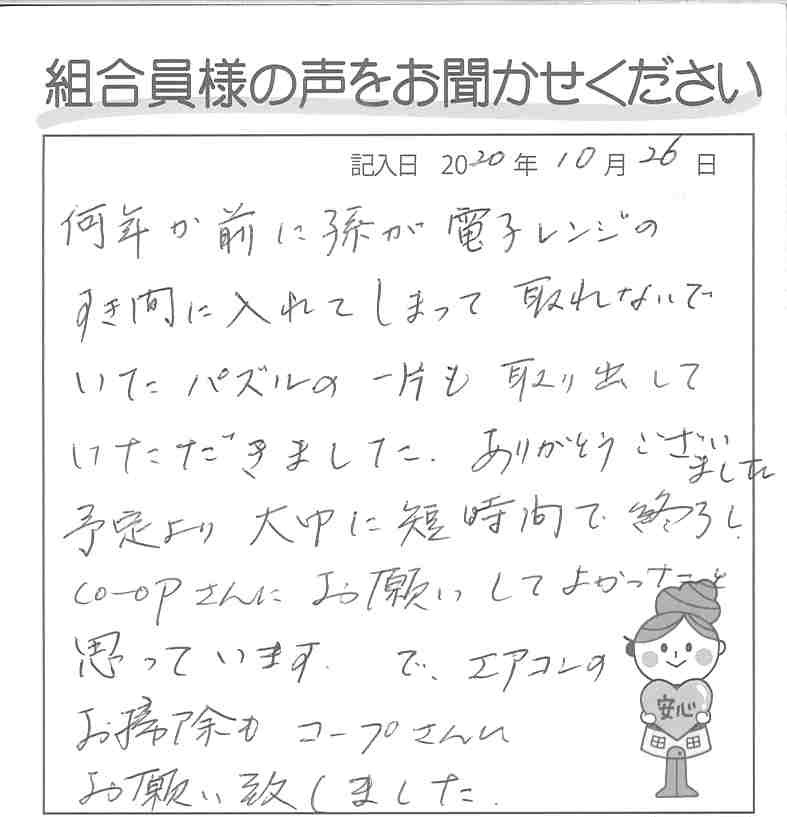 組合員様の声をお聞かせください
記入日 2020年 10月 26日
何年か前に孫が電子レンジの
すき間に入れてしまって取れないで
いたパズルの一片も取り出して
いただきました。ありがとうございました
予定より大巾に短時間で終了し、
CO-OPさんにお願いしてよかったと
思っています。で、エアコンの
お掃除もコープさんに
お願い致しました。
安心